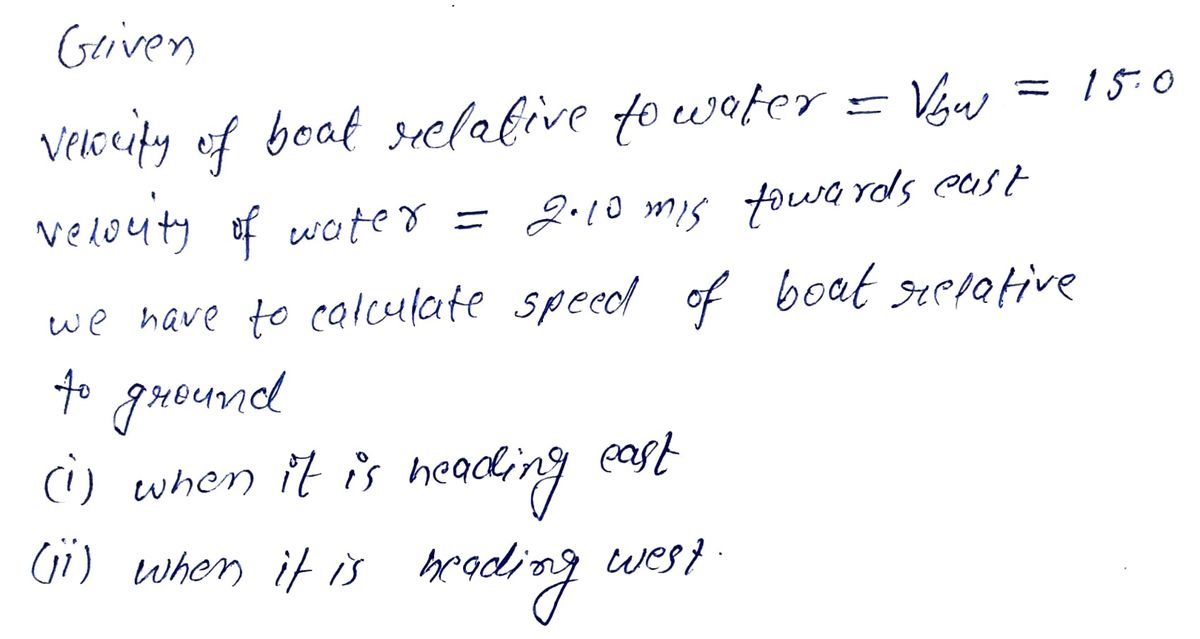 Given
velocity of boat relative to water = Vbw = 15.0
velocity of water = 2.10 m/s towards east
we have to calculate speed of boat relative
to ground
(i) when it is heading east
(ii) when it is heading west.